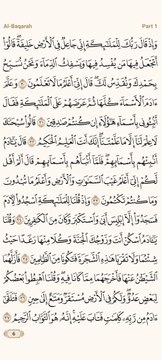 Al-Baqarah
Part 1
وَإِذْ قَالَ رَبُّكَ لِلْمَلَٰٓئِكَةِ إِنِّى جَاعِلٌ فِى ٱلْأَرْضِ خَلِيفَةً ۖ قَالُوٓا۟
أَتَجْعَلُ فِيهَا مَن يُفْسِدُ فِيهَا وَيَسْفِكُ ٱلدِّمَآءَ وَنَحْنُ نُسَبِّحُ
بِحَمْدِكَ وَنُقَدِّسُ لَكَ ۖ قَالَ إِنِّىٓ أَعْلَمُ مَا لَا تَعْلَمُونَ ٣٠ وَعَلَّمَ
ءَادَمَ ٱلْأَسْمَآءَ كُلَّهَا ثُمَّ عَرَضَهُمْ عَلَى ٱلْمَلَٰٓئِكَةِ فَقَالَ
أَنۢبِـُٔونِى بِأَسْمَآءِ هَٰٓؤُلَآءِ إِن كُنتُمْ صَٰدِقِينَ ٣١ قَالُوا۟
سُبْحَٰنَكَ لَا عِلْمَ لَنَآ إِلَّا مَا عَلَّمْتَنَآ ۖ إِنَّكَ أَنتَ ٱلْعَلِيمُ ٱلْحَكِيمُ ٣٢ قَالَ يَٰٓـَٔادَمُ
أَنۢبِئْهُم بِأَسْمَآئِهِمْ ۖ فَلَمَّآ أَنۢبَأَهُم بِأَسْمَآئِهِمْ قَالَ أَلَمْ أَقُل
لَّكُمْ إِنِّىٓ أَعْلَمُ غَيْبَ ٱلسَّمَٰوَٰتِ وَٱلْأَرْضِ وَأَعْلَمُ مَا تُبْدُونَ
وَمَا كُنتُمْ تَكْتُمُونَ ٣٣ وَإِذْ قُلْنَا لِلْمَلَٰٓئِكَةِ ٱسْجُدُوا۟ لِـَٔادَمَ
فَسَجَدُوٓا۟ إِلَّآ إِبْلِيسَ أَبَىٰ وَٱسْتَكْبَرَ وَكَانَ مِنَ ٱلْكَٰفِرِينَ ٣٤ وَقُلْنَا
يَٰٓـَٔادَمُ ٱسْكُنْ أَنتَ وَزَوْجُكَ ٱلْجَنَّةَ وَكُلَا مِنْهَا رَغَدًا حَيْثُ
شِئْتُمَا وَلَا تَقْرَبَا هَٰذِهِ ٱلشَّجَرَةَ فَتَكُونَا مِنَ ٱلظَّٰلِمِينَ ٣٥ فَأَزَلَّهُمَا
ٱلشَّيْطَٰنُ عَنْهَا فَأَخْرَجَهُمَا مِمَّا كَانَا فِيهِ ۖ وَقُلْنَا ٱهْبِطُوا۟ بَعْضُكُمْ
لِبَعْضٍ عَدُوٌّ ۖ وَلَكُمْ فِى ٱلْأَرْضِ مُسْتَقَرٌّ وَمَتَٰعٌ إِلَىٰ حِينٍ ٣٦ فَتَلَقَّىٰٓ
ءَادَمُ مِن رَّبِّهِۦ كَلِمَٰتٍ فَتَابَ عَلَيْهِ ۚ إِنَّهُۥ هُوَ ٱلتَّوَّابُ ٱلرَّحِيمُ ٣٧
6